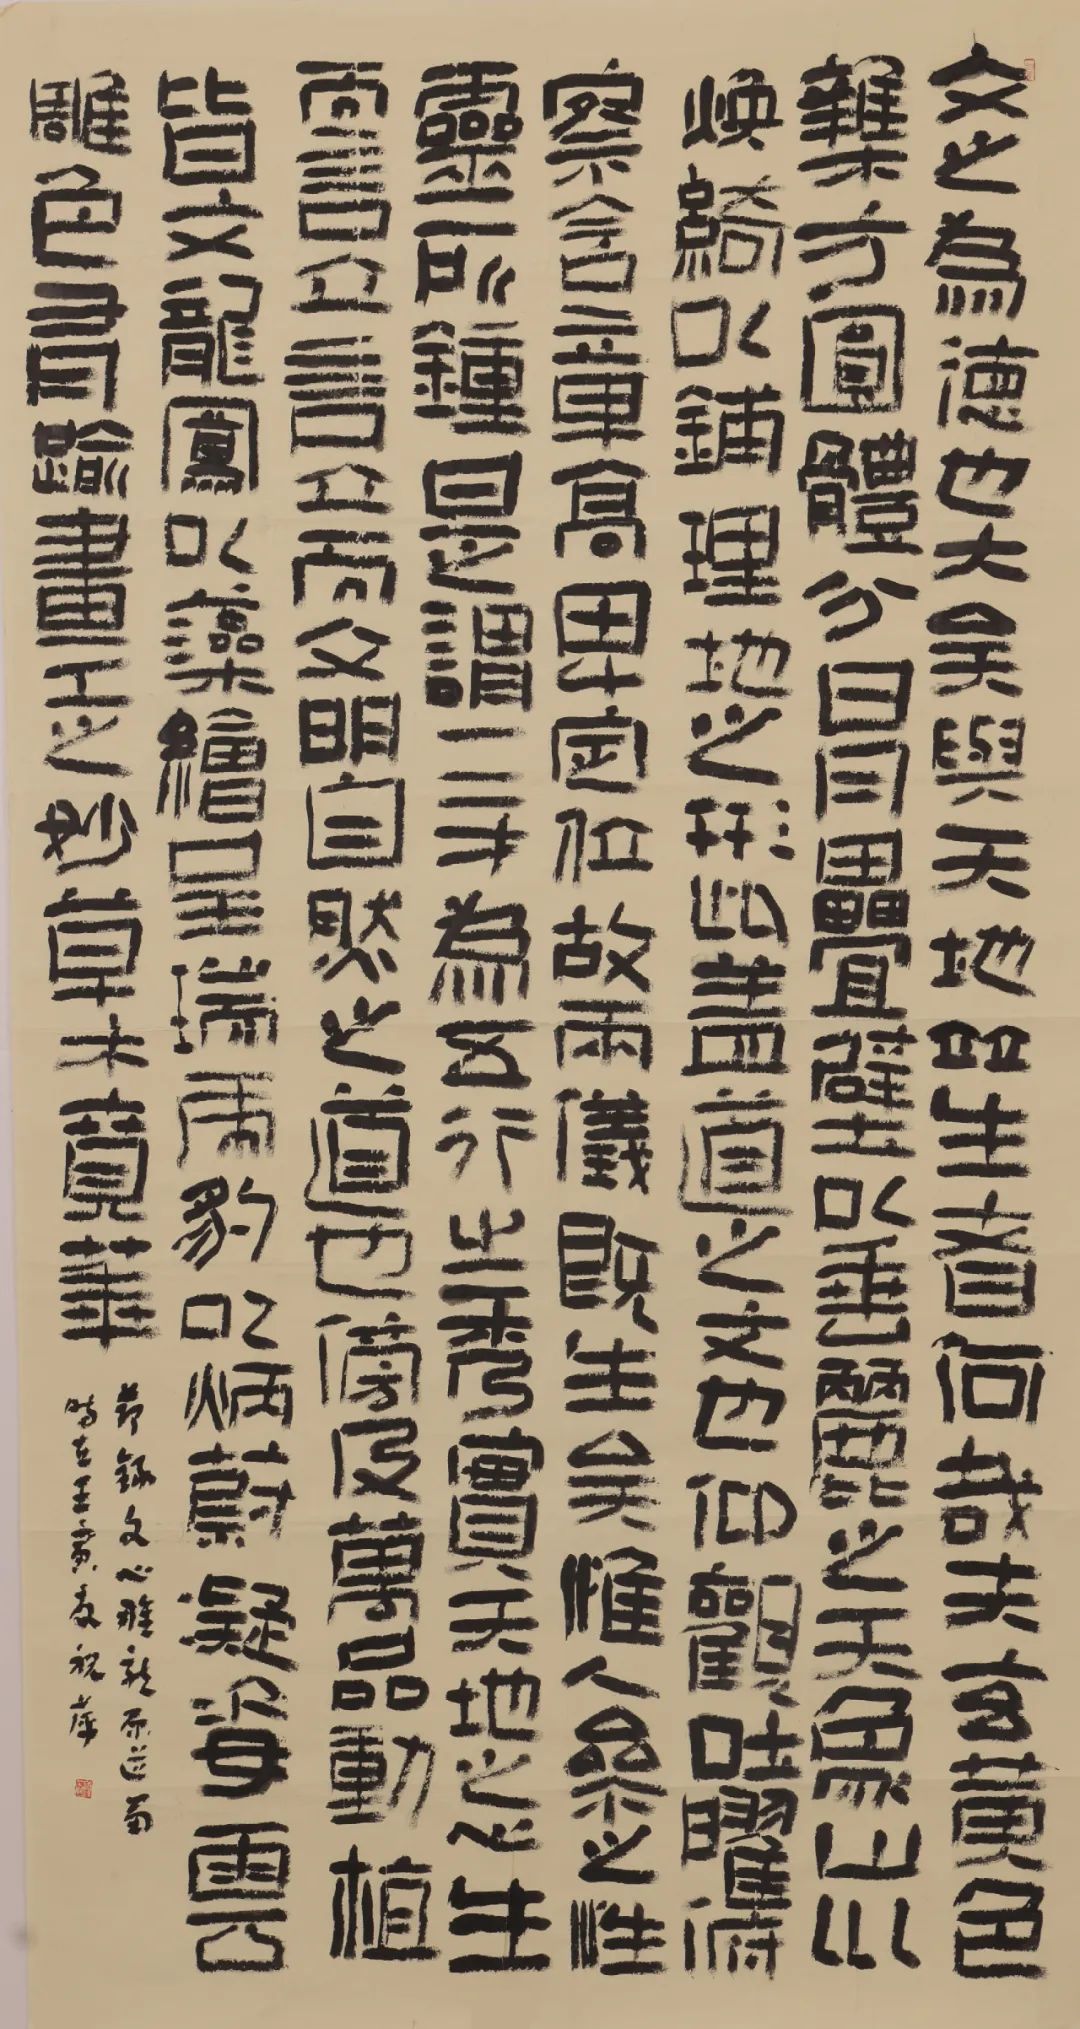 文之為德也大矣與天地並生者何哉夫玄黃色
雜方圓體分日月疊璧以垂麗之天象山川
煥綺以鋪理地之形此蓋道之文也仰觀吐曜俯
察含章高卑定位故兩儀既生矣惟人參之性
靈所鍾是謂三才為五行之秀實天地之心生
而言立言立而文明自然之道也傍及萬品動植
皆文龍鳳以藻繪呈瑞虎豹以炳蔚凝姿雲
雕色有踰畫工之妙草木賁華
節錄文心雕龍原道
時在壬寅夏祝